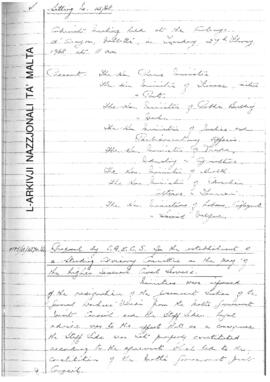 Sitting No.
Cabinet meeting held at the Auberge
d'Aragon, Valletta, on Tuesday 27th February
1968 at 11 am
Present: The Hon. Prime Minister
The Hon. Minister of Finance, Customs
+ Ports
The Hon. Minister of Public Building
+ Works
The Hon. Minister of Justice and
Parliamentary Affairs
The Hon. Minister of Trade,
Industry + Agriculture
The Hon. Minister of Health
The Hon. Minister of Education
Culture + Tourism
The Hon. Minister of Labour, Employment
+ Social Welfare
L-ARKIVJI NAZZJONALI TA' MALTA
Proposal by C.G.E.C.S. for the establishment of
a Standing Advisory Committee on the Pay of
the higher Salaried Civil Servants.
Ministers were informed
of the resignation of the
Workers' Union from the Malta Government
Joint Council and the Staff Side. Legal
advice was to the effect that as a consequence
the Staff Side was not properly constituted
according to the agreement which led to the
constitution of the Malta Government Joint
Council.